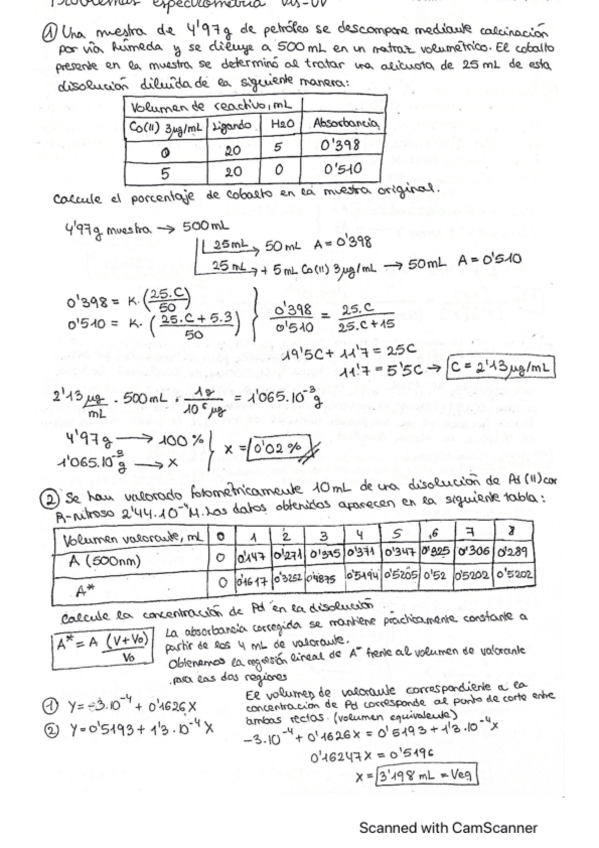 Problemas espectrometría VIS-UV
① Una muestra de 4'97g de petróleo se descompone mediante calcinación
por vía húmeda y se diluye a 500 mL en un matraz volumétrico. El cobalto
presente en la muestra se determinó al tratar una alícuota de 25 mL de esta
disolución diluida de la siguiente manera:
Volumen de reactivo, mL
Co(II) 3µg/mL Ligando H2O Absorbancia
0 20 5 0'398
5 20 0 0'510
Calcule el porcentaje de cobalto en la muestra original.
4'97g muestra → 500mL
25mL → 50 mL A = 0'398
25 mL → + 5 mL Co(II) 3µg/mL → 50mL A = 0'510
0'398 = K. (25.C/50)
0'510 = K. (25.C + 5.3/50)
0'398/0'510 = 25.C/25.C+15
19'5C + 11'7 = 25C
11'7 = 5'5C → C = 2'13µg/mL
2'13 µg/mL . 500mL . 1g/10⁶µg = 1'065.10⁻³g
4'97g → 100%
1'065.10⁻³g → x
x = 0'02%
② Se han valorado fotométricamente 10mL de una disolución de Pd(II) con
R-nitroso 2'44.10⁻⁴M. Los datos obtenidos aparecen en la siguiente tabla:
Volumen valorante, mL 0 1 2 3 4 5 6 7 8
A (500nm) 0 0'147 0'271 0'375 0'371 0'347 0'325 0'306 0'289
A* 0 0'1617 0'3252 0'4875 0'5194 0'5205 0'52 0'5202 0'5202
Calcule la concentración de Pd en la disolución
A* = A (V+V₀)/V₀
La absorbancia corregida se mantiene prácticamente constante a
partir de los 4 mL de valorante.
Obtenemos la regresión lineal de A* frente al volumen de valorante
para las dos regiones
① Y = -3.10⁻⁴ + 0'1626X
② Y = 0'5193 + 1'3.10⁻⁴X
El volumen de valorante correspondiente a la
concentración de Pd corresponde al punto de corte entre
ambas rectas (volumen equivalente)
-3.10⁻⁴ + 0'1626x = 0'5193 + 1'3.10⁻⁴x
0'16247x = 0'5196
x = 3'198 mL = Veq
Scanned with CamScanner